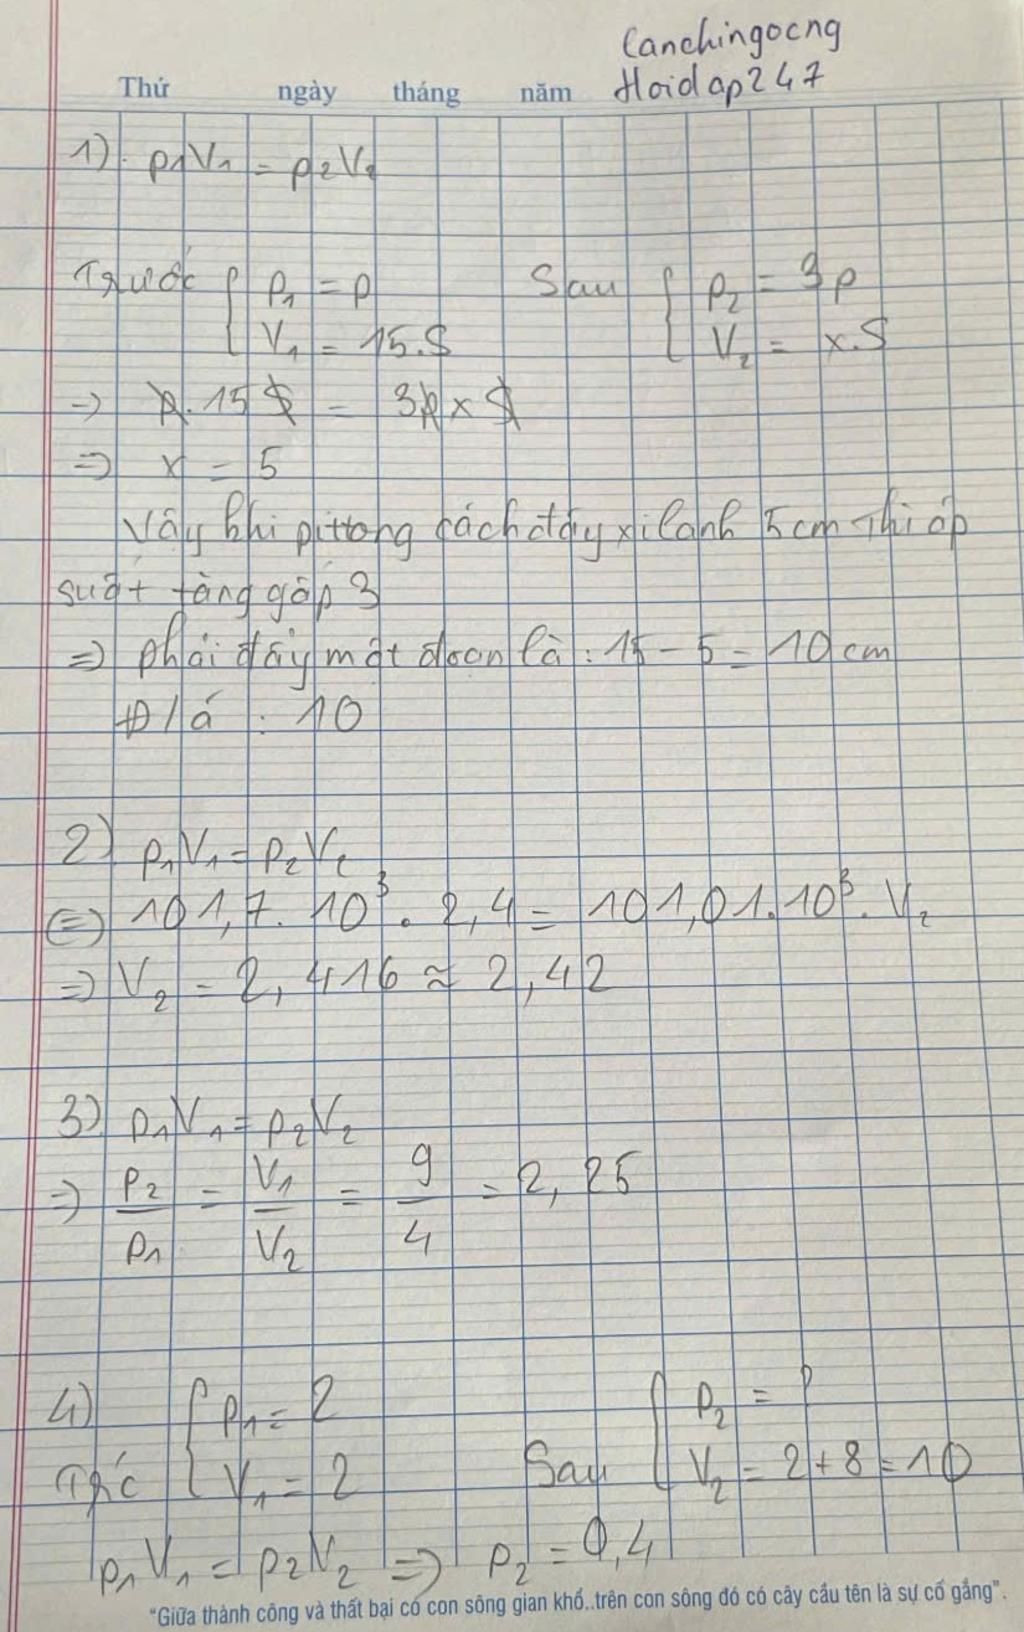 Canchingocng
Thứ ngày tháng năm Hoidap247
1) p1V1 = p2V2
Trước { p1 = p Sau { p2 = 3p
V1 = 15.S V2 = x.S
=> p.15S = 3pxS
=> x = 5
Vậy khi pittong cách đáy xilanh 5cm thì áp
suất tăng gấp 3
=> phải đẩy một đoạn là: 15 - 5 = 10cm
Đ/á : 10
2) p1V1 = p2V2
(=) 101,7.10³.2,4 = 101,01.10³.V2
=> V2 = 2,416 ≈ 2,42
3) p1V1 = p2V2
=> p2/p1 = V1/V2 = 9/4 = 2,25
4) { p1 = 2 { p2 = ?
Trc V1 = 2 Sau V2 = 2+8=10
p1V1 = p2V2 => p2 = 0,4
"Giữa thành công và thất bại có con sông gian khổ..trên con sông đó có cây cầu tên là sự cố gắng".